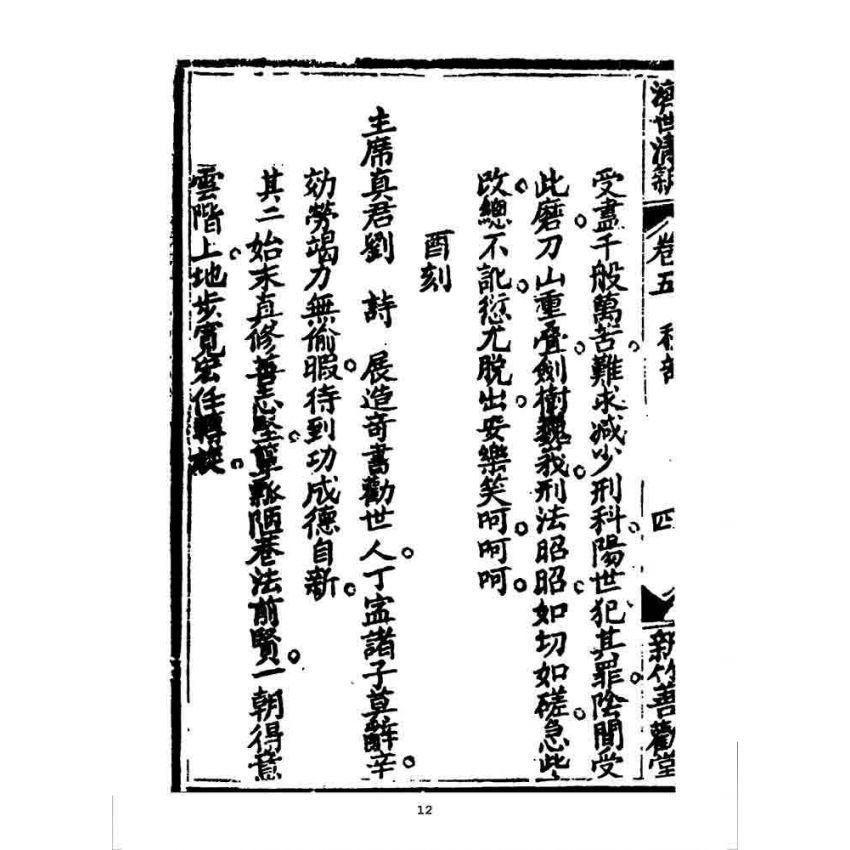 濟世清新 卷五 四 新竹善勸堂
受盡千般萬苦。難求減少刑科。陽世犯其罪。陰間受
此磨。刀山重疊。劍樹巍峩。刑法昭昭。如切如磋。急些
改。總不訛。愆尤脫出。安樂笑呵呵呵。
酉刻
主席真君劉 詩 展造奇書勸世人。丁寧諸子莫辭辛。
効勞竭力無偷暇。待到功成德自新。
其二 始末真修善志堅。簞瓢陋巷法前賢。一朝得意
雲階上。地步寬宏任轉旋。
12